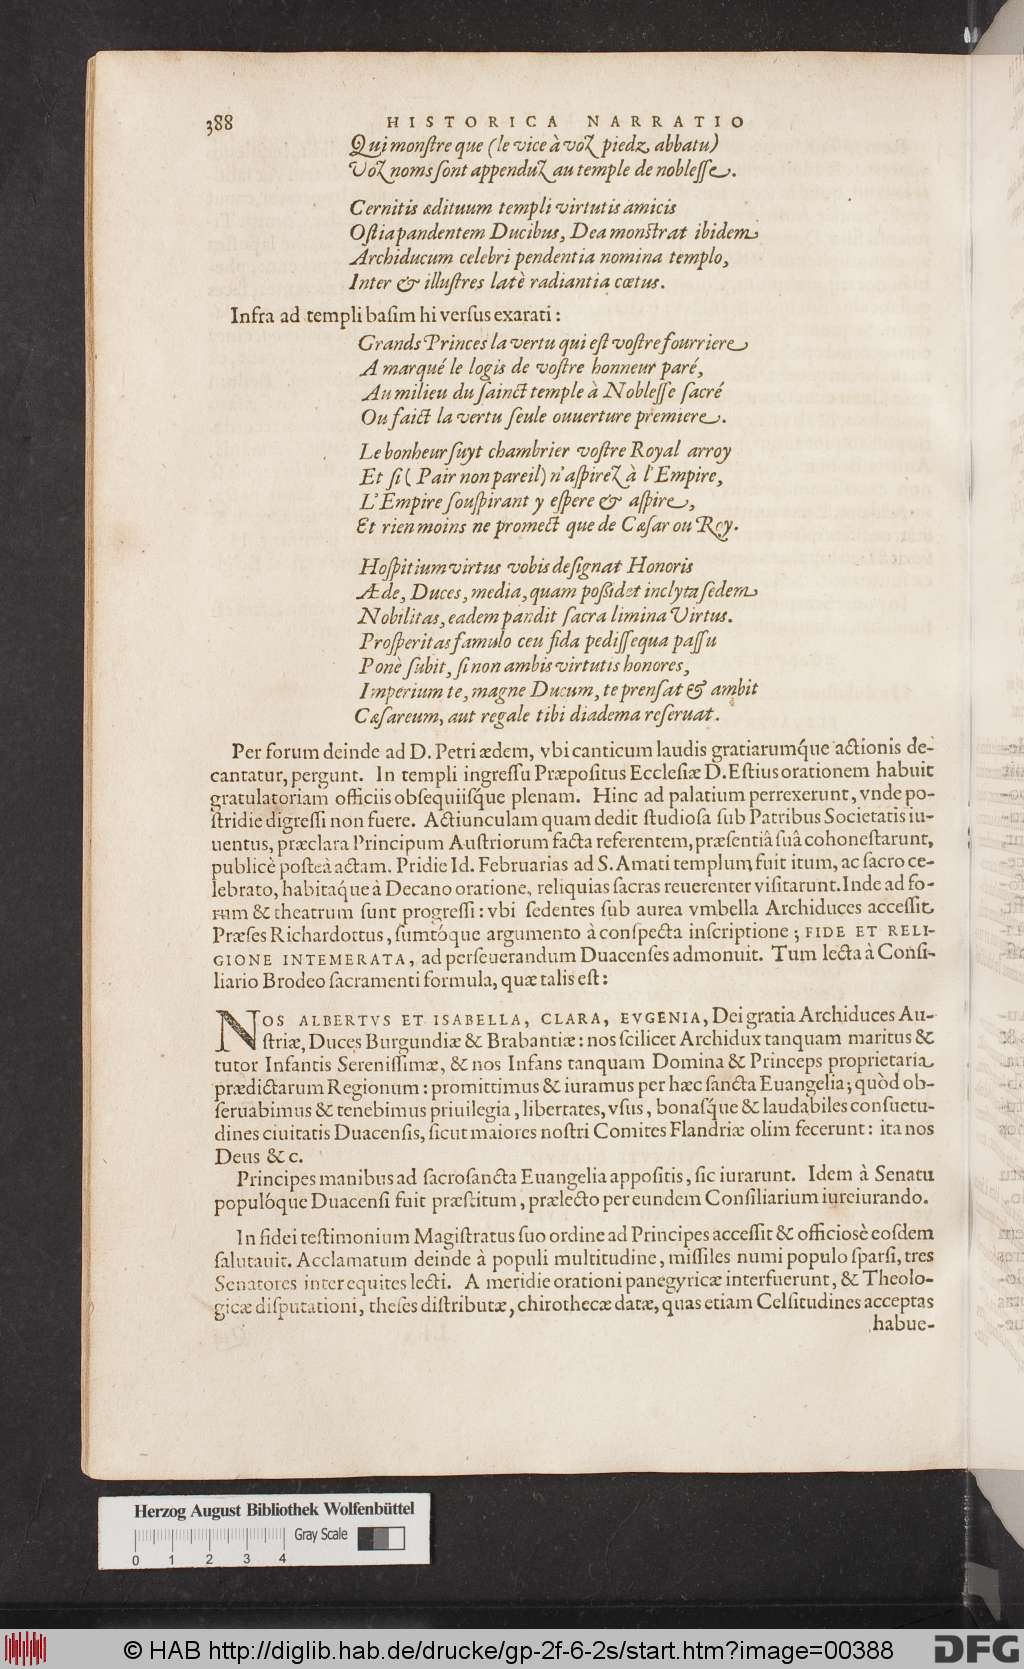 388 HISTORICA NARRATIO
Qui monſtre que (le vice à voz piedz abbatu)
Voz noms ſont appenduz au temple de nobleſſe.
Cernitis ædituum templi virtutis amicis
Oſtia pandentem Ducibus, Dea monſtrat ibidem
Archiducum celebri pendentia nomina templo,
Inter & illuſtres latè radiantia cœtus.
Infra ad templi baſim hi verſus exarati:
Grands Princes la vertu qui eſt voſtre fourriere
A marqué le logis de voſtre honneur paré,
Au milieu du ſainct temple à Nobleſſe ſacré
Ou faict la vertu ſeule ouuerture premiere.
Le bonheur ſuyt chambrier voſtre Royal arroy
Et ſi (Pair non pareil) n'aſpirez à l'Empire,
L'Empire ſouſpirant y eſpere & aſpire,
Et rien moins ne promect que de Cæſar ou Roy.
Hoſpitium virtus vobis deſignat Honoris
Æde, Duces, media, quam poßidet inclyta ſedem
Nobilitas, eadem pandit ſacra limina Virtus.
Proſperitas famulo ceu fida pediſſequa paſſu
Ponè ſubit, ſi non ambis virtutis honores,
Imperium te, magne Ducum, te prenſat & ambit
Cæſareum, aut regale tibi diadema reſeruat.
Per forum deinde ad D. Petri ædem, vbi canticum laudis gratiarumq́ue actionis de-
cantatur, pergunt. In templi ingreſſu Præpoſitus Eccleſiæ D. Eſtius orationem habuit
gratulatoriam officiis obſequiiſq́ue plenam. Hinc ad palatium perrexerunt, vnde po-
ſtridie digreſſi non fuere. Actiunculam quam dedit ſtudioſa ſub Patribus Societatis iu-
uentus, præclara Principum Auſtriorum facta referentem, præſentiâ ſuâ cohoneſtarunt,
publicè poſteà actam. Pridie Id. Februarias ad S. Amati templum fuit itum, ac ſacro ce-
lebrato, habitaq́ue à Decano oratione, reliquias ſacras reuerenter viſitarunt. Inde ad fo-
rum & theatrum ſunt progreſſi: vbi ſedentes ſub aurea vmbella Archiduces acceſſit
Præſes Richardottus, ſumtóque argumento à conſpecta inſcriptione; FIDE ET RELI-
GIONE INTEMERATA, ad perſeuerandum Duacenſes admonuit. Tum lecta à Conſi-
liario Brodeo ſacramenti formula, quæ talis eſt:
NOS ALBERTVS ET ISABELLA, CLARA, EVGENIA, Dei gratia Archiduces Au-
ſtriæ, Duces Burgundiæ & Brabantiæ: nos ſcilicet Archidux tanquam maritus &
tutor Infantis Sereniſſimæ, & nos Infans tanquam Domina & Princeps proprietaria
prædictarum Regionum: promittimus & iuramus per hæc ſancta Euangelia; quòd ob-
ſeruabimus & tenebimus priuilegia, libertates, vſus, bonaſq́ue & laudabiles conſuetu-
dines ciuitatis Duacenſis, ſicut maiores noſtri Comites Flandriæ olim fecerunt: ita nos
Deus & c.
Principes manibus ad ſacroſancta Euangelia appoſitis, ſic iurarunt. Idem à Senatu
populóque Duacenſi fuit præſtitum, prælecto per eundem Conſiliarium iureiurando.
In fidei teſtimonium Magiſtratus ſuo ordine ad Principes acceſſit & officiosè eoſdem
ſalutauit. Acclamatum deinde à populi multitudine, miſſiles numi populo ſparſi, tres
Senatores inter equites lecti. A meridie orationi panegyricæ interfuerunt, & Theolo-
gicæ diſputationi, theſes diſtributæ, chirothecæ datæ, quas etiam Celſitudines acceptas
habue-
Herzog August Bibliothek Wolfenbüttel
Gray Scale
0 1 2 3 4
© HAB http://diglib.hab.de/drucke/gp-2f-6-2s/start.htm?image=00388
DFG